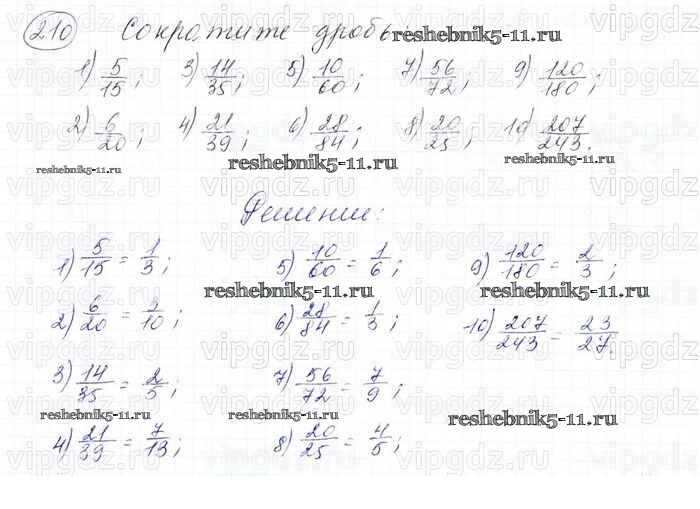 210 Сократите дробь: reshebnik5-11.ru
1) 5/15; 3) 14/35; 5) 10/60; 7) 56/72; 9) 120/180;
2) 6/20; 4) 21/39; 6) 28/84; 8) 20/25; 10) 207/243.
reshebnik5-11.ru reshebnik5-11.ru reshebnik5-11.ru
Решение:
1) 5/15 = 1/3; 5) 10/60 = 1/6; 9) 120/180 = 2/3;
reshebnik5-11.ru reshebnik5-11.ru
2) 6/20 = 3/10; 6) 28/84 = 1/3; 10) 207/243 = 23/27.
3) 14/35 = 2/5; 7) 56/72 = 7/9;
reshebnik5-11.ru reshebnik5-11.ru reshebnik5-11.ru
4) 21/39 = 7/13; 8) 20/25 = 4/5;
vipgdz vipgdz vipgdz vipgdz